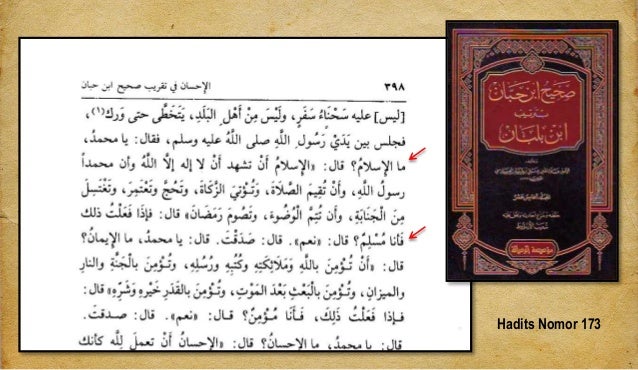 ٣٩٨ الإحسان في تقريب صحيح ابن حبان
[ليس] عليه سَحْنَاءُ سَفَرٍ، وَلَيْسَ مِنْ أَهْلِ البَلَدِ، يَتَخَطَّى حتى وَرك(١)،
فجلس بين يَدَيْ رَسُولِ اللَّهِ صلى اللَّهُ عليه وسلم، فقال: يا محمدُ،
ما الإسلامُ؟ قال: «الإسلامُ أَنْ تشهد أَنْ لا إله إلَّا اللَّهُ وأن محمداً
رسولُ اللَّهِ، وأَنْ تُقِيمَ الصَّلَاةَ، وَتُؤتِيَ الزَّكَاةَ، وَتَحُجَّ وَتَعْتَمِرَ، وَتَغْتَسِلَ
مِنَ الْجَنَابَةِ، وأن تُتِمَّ الْوُضُوءَ، وَتَصُومَ رَمَضَانَ» قال: فإذَا فَعَلْتُ ذلك
فأنا مُسْلِمٌ؟ قال: «نعم». قال: صَدَقْتَ. قال: يا محمدُ، ما الإيمانُ؟
قال: «أَنْ تُؤمِنَ باللَّهِ وَمَلَائِكَتِهِ وكُتُبِهِ وَرُسُلِهِ، وتُؤمِنَ بالْجَنَّةِ والنارِ
والميزانِ، وتُؤمِنَ بالْبَعْثِ بَعْدَ المَوْتِ، وَتُؤمِنَ بالقَدَرِ خَيْرِهِ وَشَرِّهِ» قال:
فإذا فَعَلْتُ ذَلِكَ، فَأَنَا مُؤمِنٌ؟ قال: «نعم». قال: صدقتَ.
قال: يا محمدُ، ما الإحسانُ؟ قال: «الإحسانُ أَنْ تعملَ لِلَّهِ كأنك
صحيح ابن حبان
بترتيب
ابن بلبان
مؤسسة الرسالة
Hadits Nomor 173